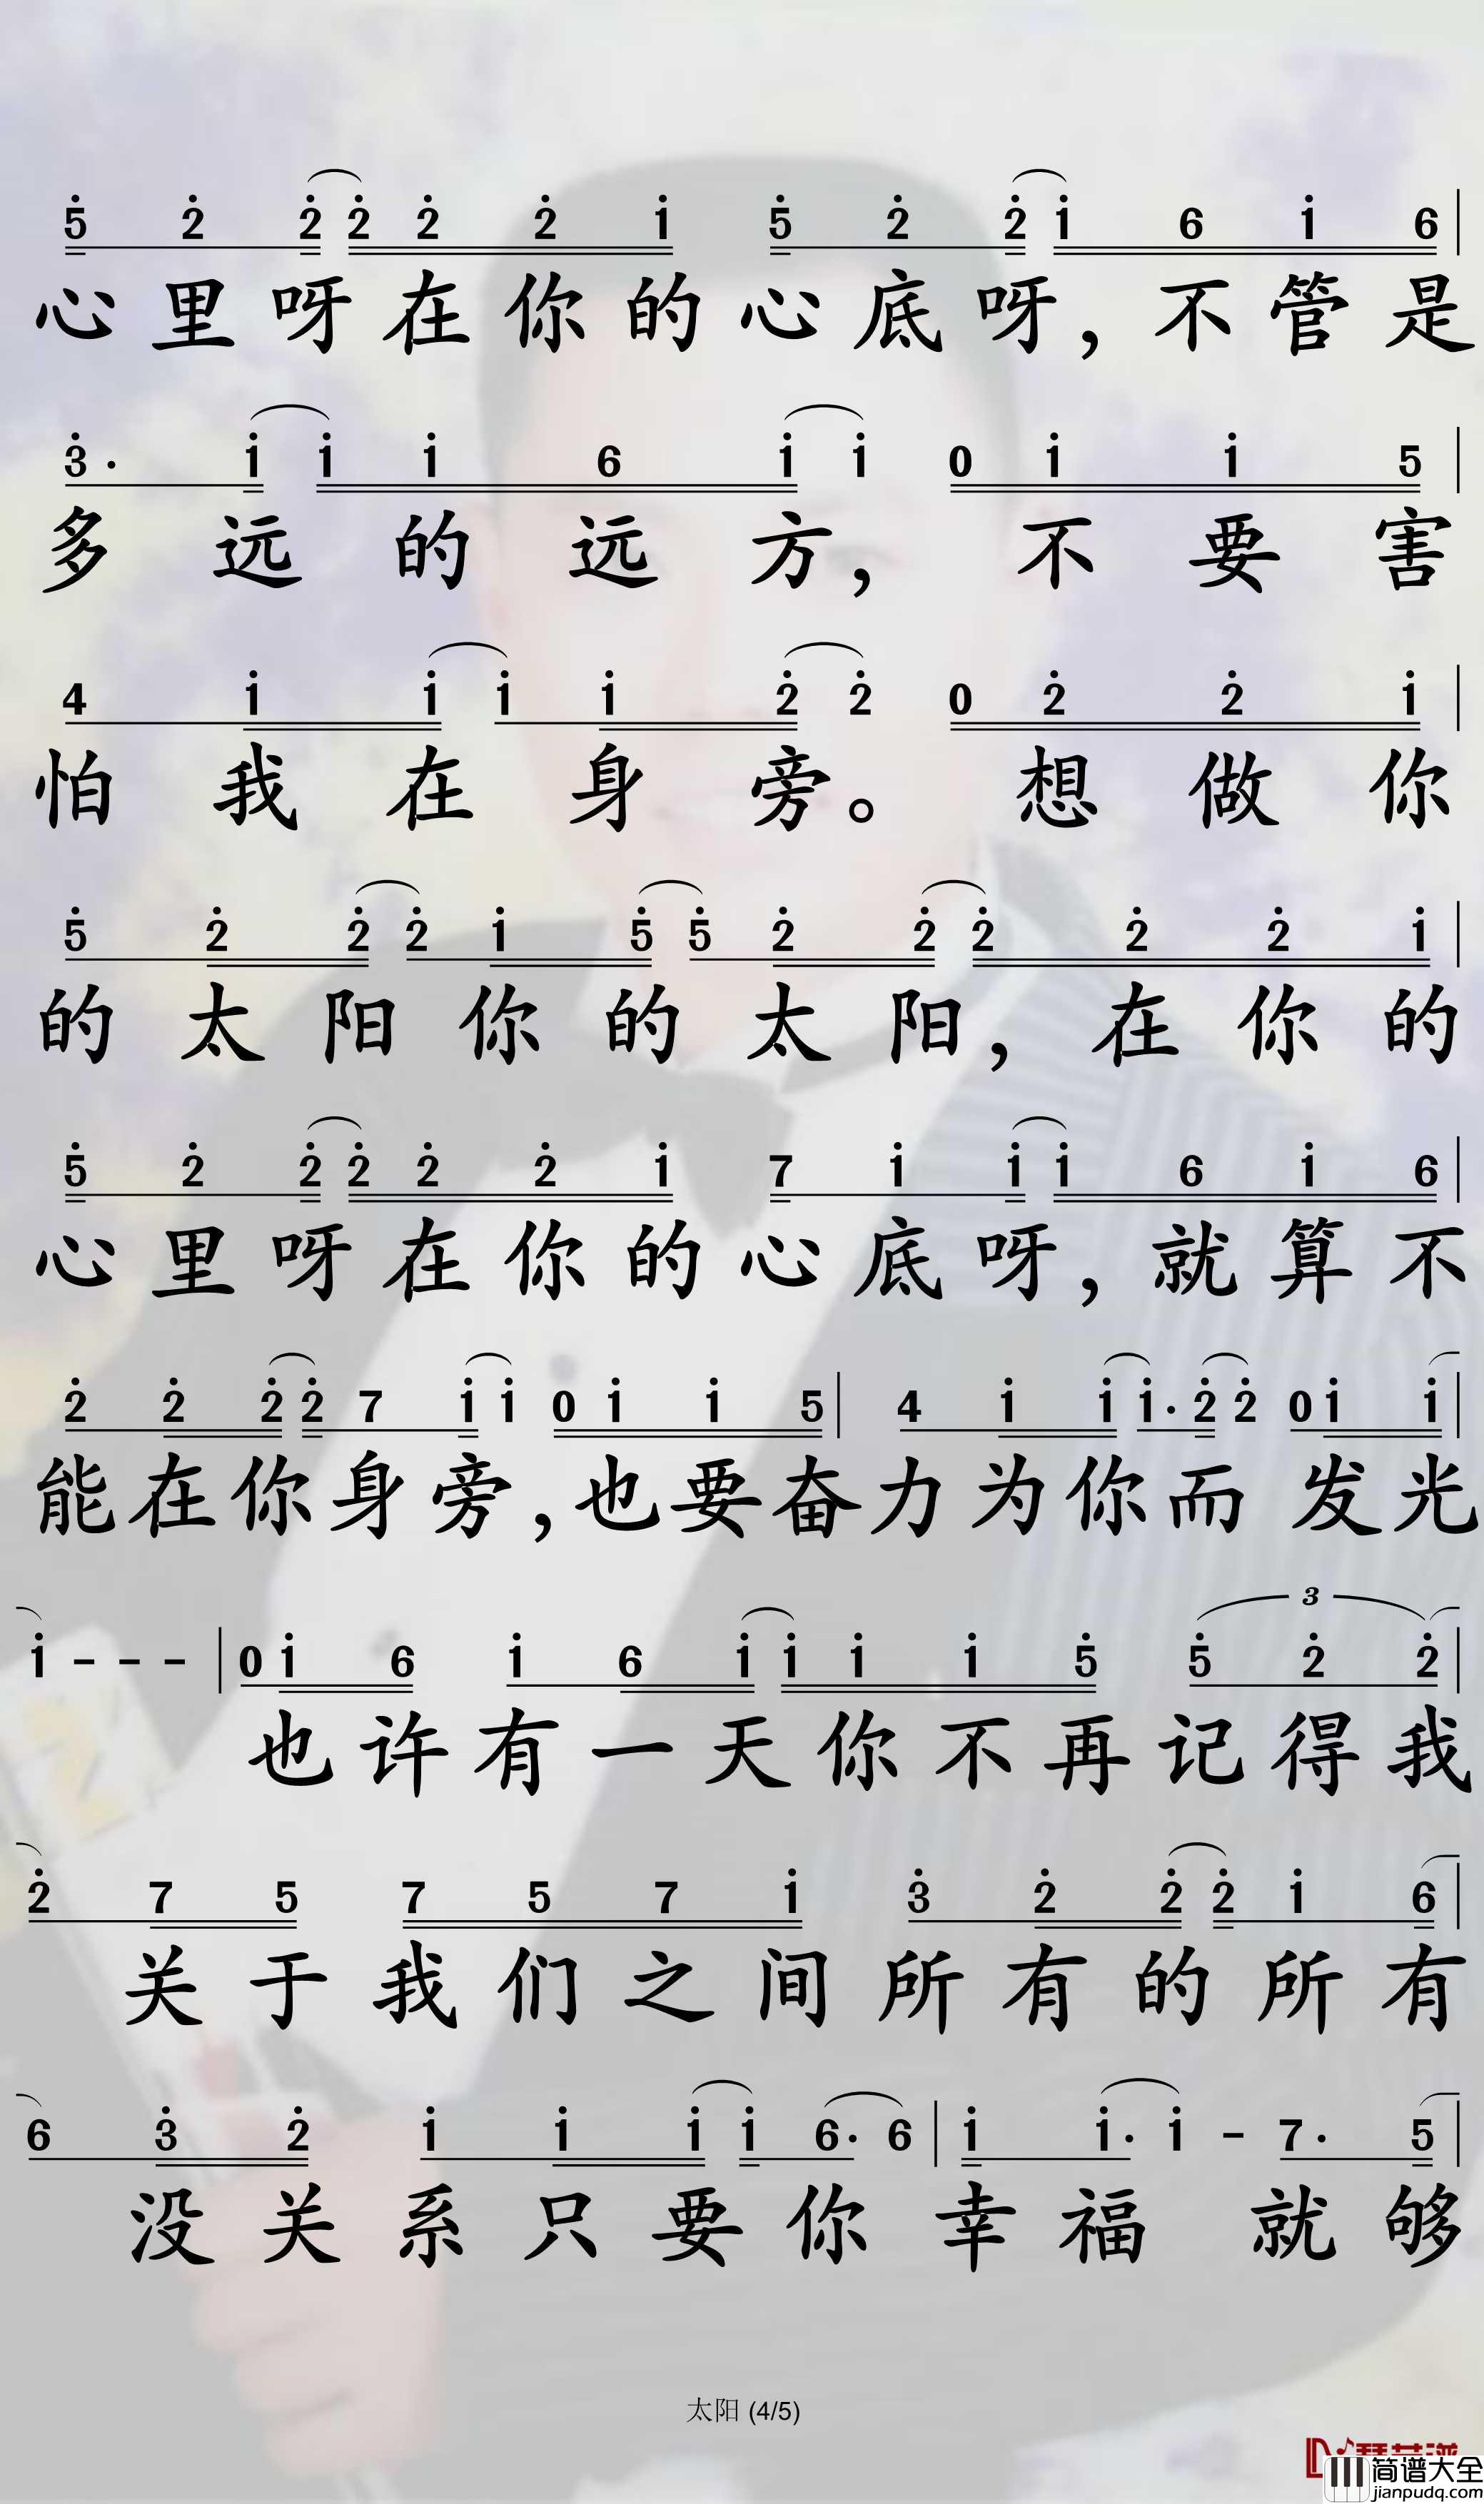 5 2 2 2 2 2 1 5 2 2 1 6 1 6
心里呀在你的心底呀，不管是
3· 1 1 1 6 1 1 0 1 1 5
多远的远方，不要害
4 1 1 1 1 2 2 0 2 2 1
怕我在身旁。想做你
5 2 2 2 1 5 5 2 2 2 2 2 1
的太阳你的太阳，在你的
5 2 2 2 2 2 1 7 1 1 1 6 1 6
心里呀在你的心底呀，就算不
2 2 2 2 7 1 1 0 1 1 5 4 1 1 1· 2 2 0 1 1
能在你身旁，也要奋力为你而发光
3
1 - - - 0 1 6 1 6 1 1 1 1 5 5 2 2
也许有一天你不再记得我
2 7 5 7 5 7 1 3 2 2 2 1 6
关于我们之间所有的所有
6 3 2 1 1 1 1 6· 6 1 1· 1 - 7· 5
没关系只要你幸福 就够
太阳 (4/5)
简谱大全
jianpudq.com